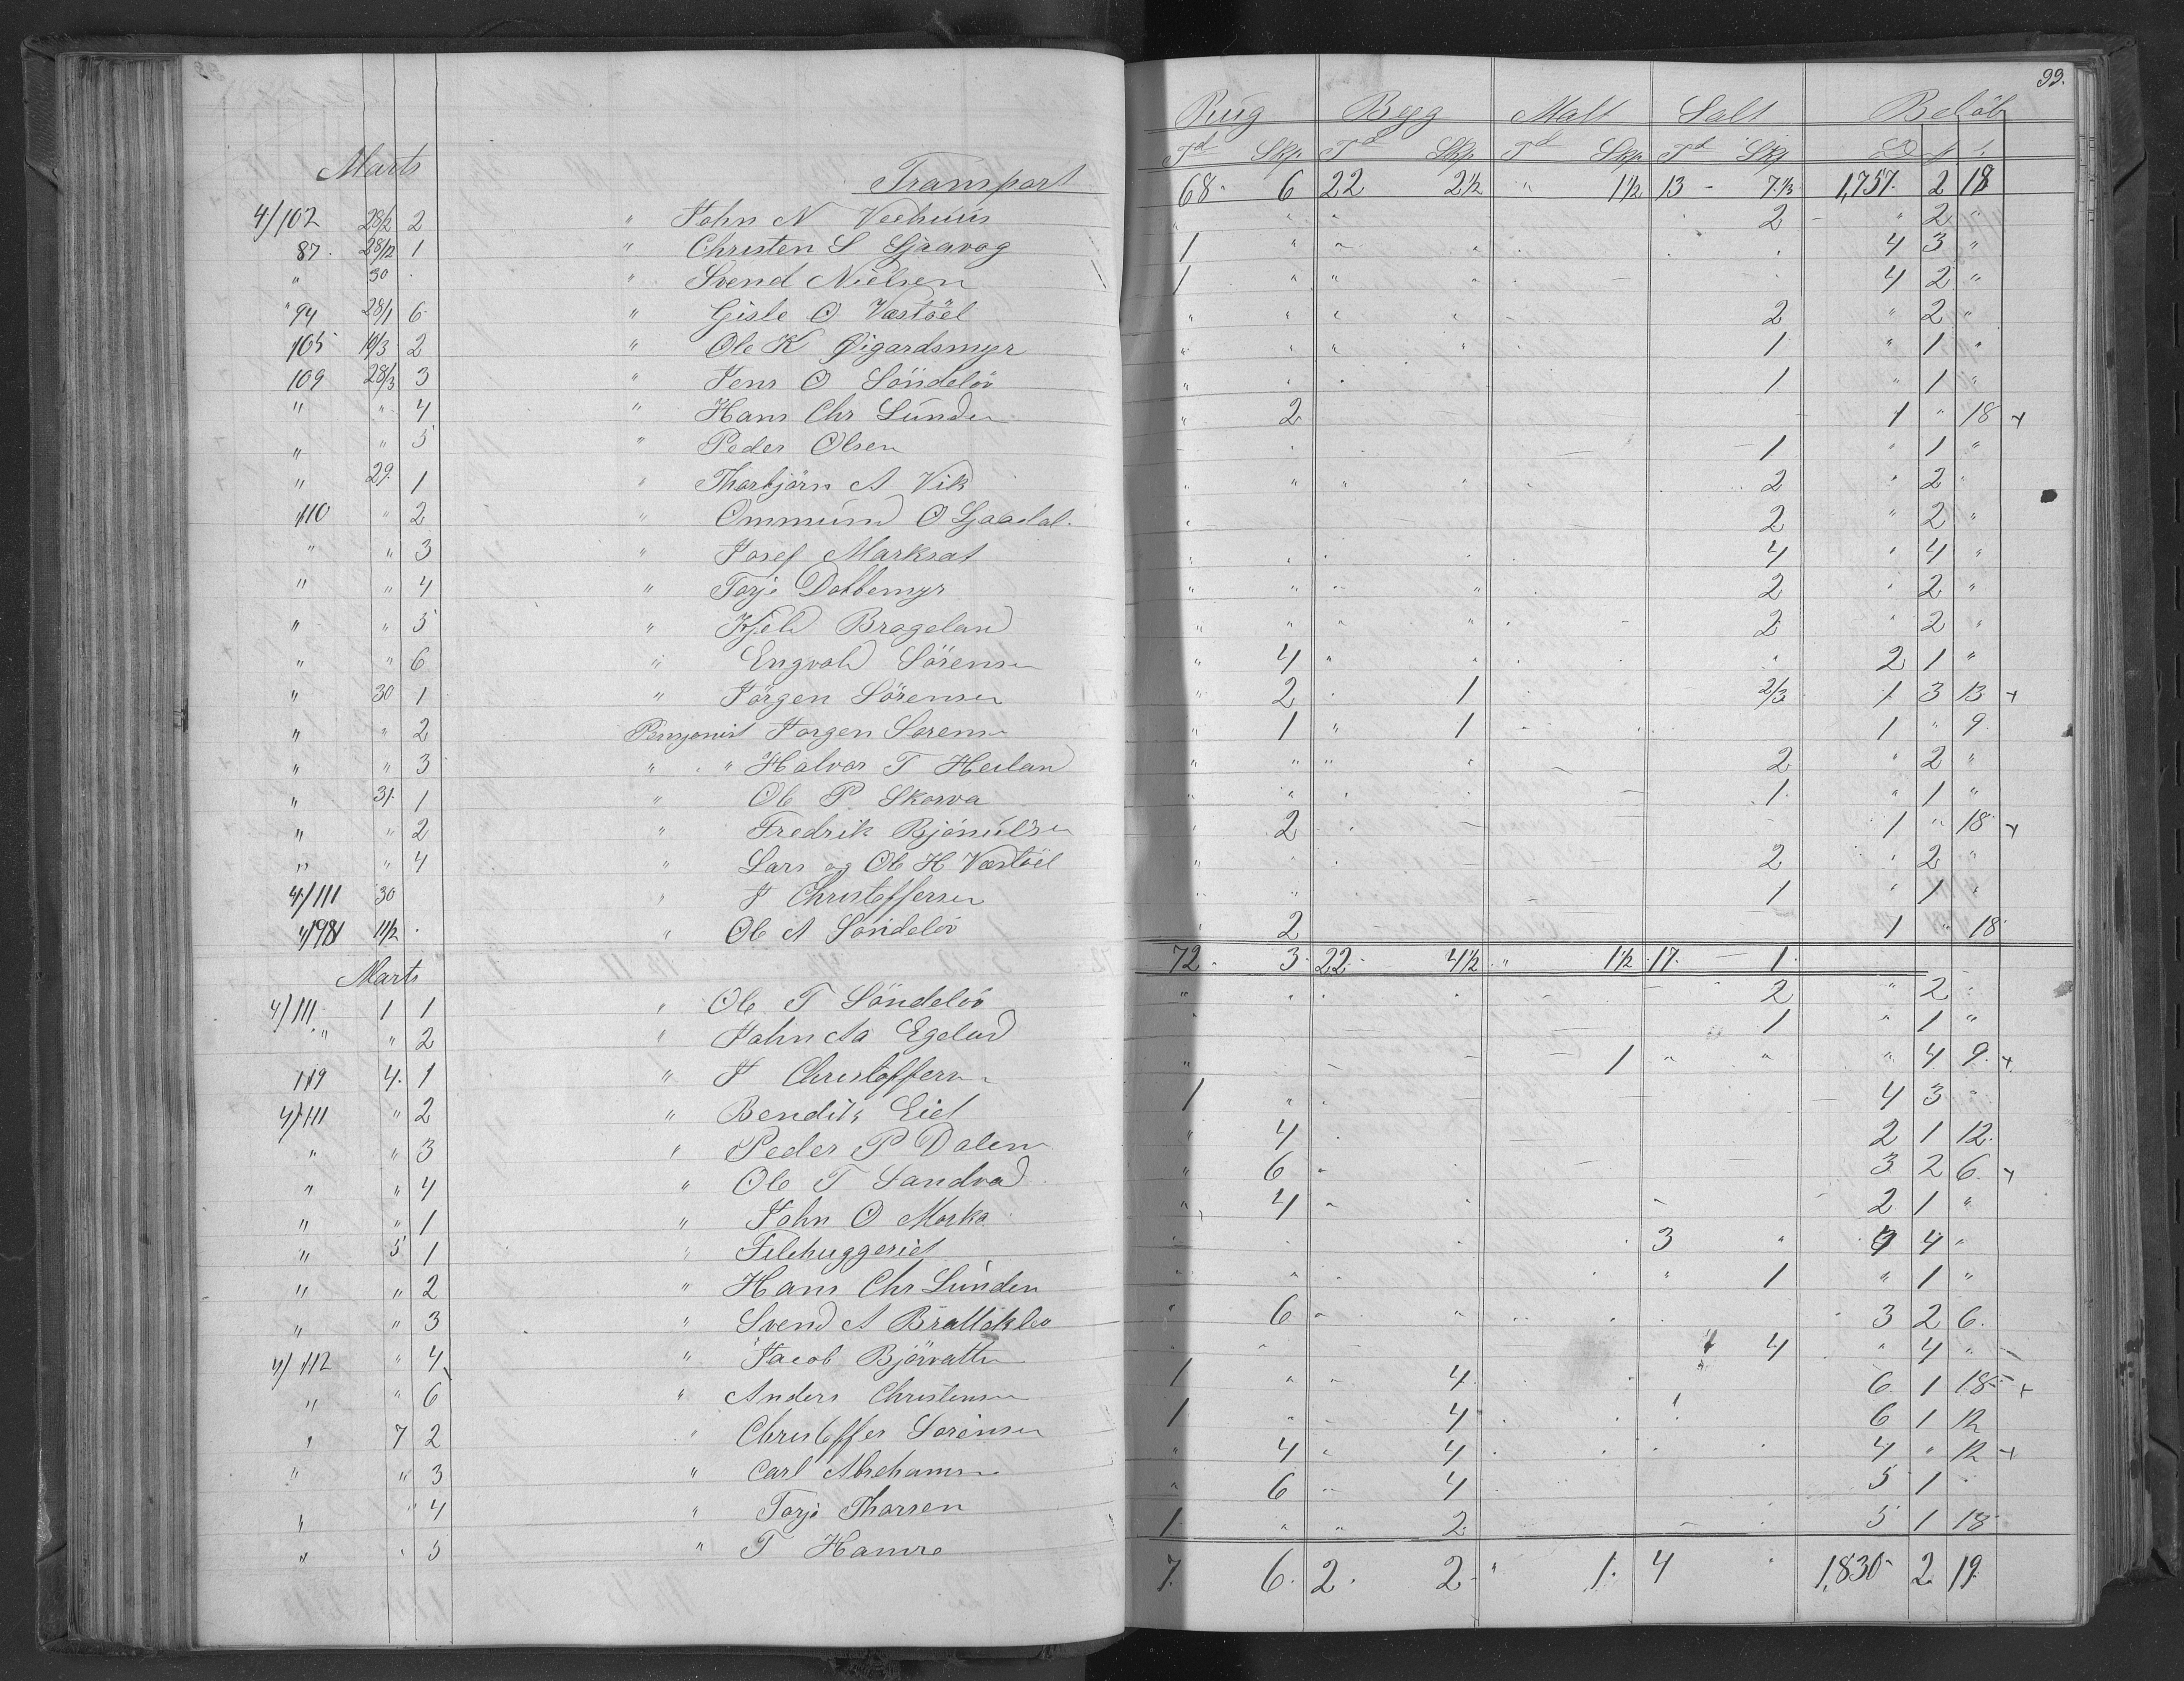 99.
Rug Bygg Malt Salt Beløb
Marts Td Skp. Td Skp. Td Skp. Td Skp
Transport 68 - 6 22 2½ " 1½ 13 - 7⅓ 1,757. 2 18
4/102 28/2 2 " John N 2 - " 2 "
87. 28/12 1 " Christen S Sjaavog 1 " " " . 4 3 "
" 30 . " Svend Nielsen 1 " " " 4 2 "
" 94 28/1 6 " Gisle O Vastöel " " " " 2 " 2 "
105 19/3 2 " Ole K Øigardsmyr " " " " 1 " 1 "
109 28/3 3 " Jens O Söndelöv " " 1 " 1 "
" " 4 " Hans Chr Lunden " 2 1 " 18 +
" " 5 " Peder Olsen 1 " 1 "
" 29. 1 " Thorbjörn A Vik " " " " 2 " 2 "
110 " 2 " Ommund O Sjaadal. 2 " 2 "
" " 3 " Josef Marksat " 4 " 4 "
" " 4 " Torje Dalbemyr " " " 2 " 2 "
" " 5 " Kjeld Brageland " " " " 2 " 2 "
" " 6 " Engvald Sörensen " 4 " " " 2 1 "
" 30 1 " Jörgen Sörensen " 2 1 2/3 1 3 13 +
" " 2 Pensjonist Jorgen Sorensen " 1 " 1 1 " 9.
" " 3 " " Halvor T Heiland " " " " 2 " 2 "
" 31. 1 " Ole P. Skorva " " 1. " 1 "
" " 2 " Fredrik Bjönulsen 2 1 " 18 +
" " 4 " Lars og Ole H Vastöel " 2 " 2 "
4/111 30 " J Christoffersen " 1 " 1 "
4/98 11/2 . " Ole A Söndelöv 2 1 " 18
72 - 3. 22. - 4½ " 1½ 17. - 1.
Marts
4/111 1 1 " Ole T Söndelöv " 2 " 2 "
" " 2 " John Aa Egelund 1 " 1 "
119 4. 1 " J Christoffersen " 1 " " " 4 9. +
4/111 " 2 " Bendik Eid 1 " 4 3 "
" " 3 " Peder P Dalen " 4 2 1 12.
" " 4 " Ole T Sandvad " 6 3 2 6. +
" " 1 " John O Morka " 4 " 2 1 "
" 5 1 " Filehuggeriet 3 " 4 "
" " 2 " Hans Chr Lunden " " 1 " 1 "
" " 3 " Svend A Bratteklev " 6 " " 3 2 6.
4/112 " 4 " Jacob Björvatten 4 " 4 "
" " 6 " Anders Christensen 1 " " 4 6. 1 18 +
" 7 2 " Christoffer Sorensen 1 " 4 6 1 12
" " 3 " Carl Abrehamsen " 4 " 4 4 " 12 +
" " 4 " Torje Thorsen " 6 " 4 5 1
" " 5 " T Hamre 1 " " 2 5 1 18
7. 6. 2. 2 " 1. 4 1,830 2 19.